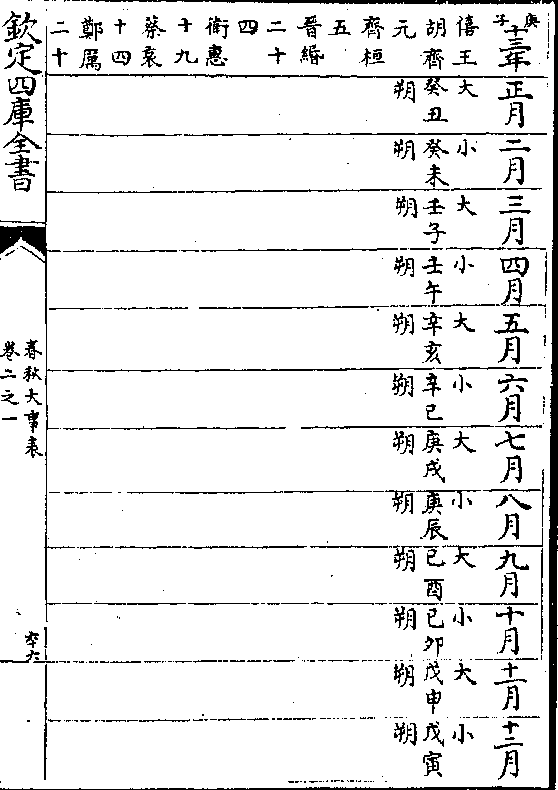 庚子
十三年
僖王
胡齊
元
齊桓
五
晉緡
二十
四
衛惠
十九
蔡哀
十四
鄭厲
二十
正月
大
癸丑
朔
二月
小
癸未
朔
三月
大
壬子
朔
四月
小
壬午
朔
五月
大
辛亥
朔
六月
小
辛巳
朔
七月
大
庚戌
朔
八月
小
庚辰
朔
九月
大
己酉
朔
十月
小
己卯
朔
十一月
大
戊申
朔
十二月
小
戊寅
朔
欽定四庫全書
春秋大事表
卷二之一